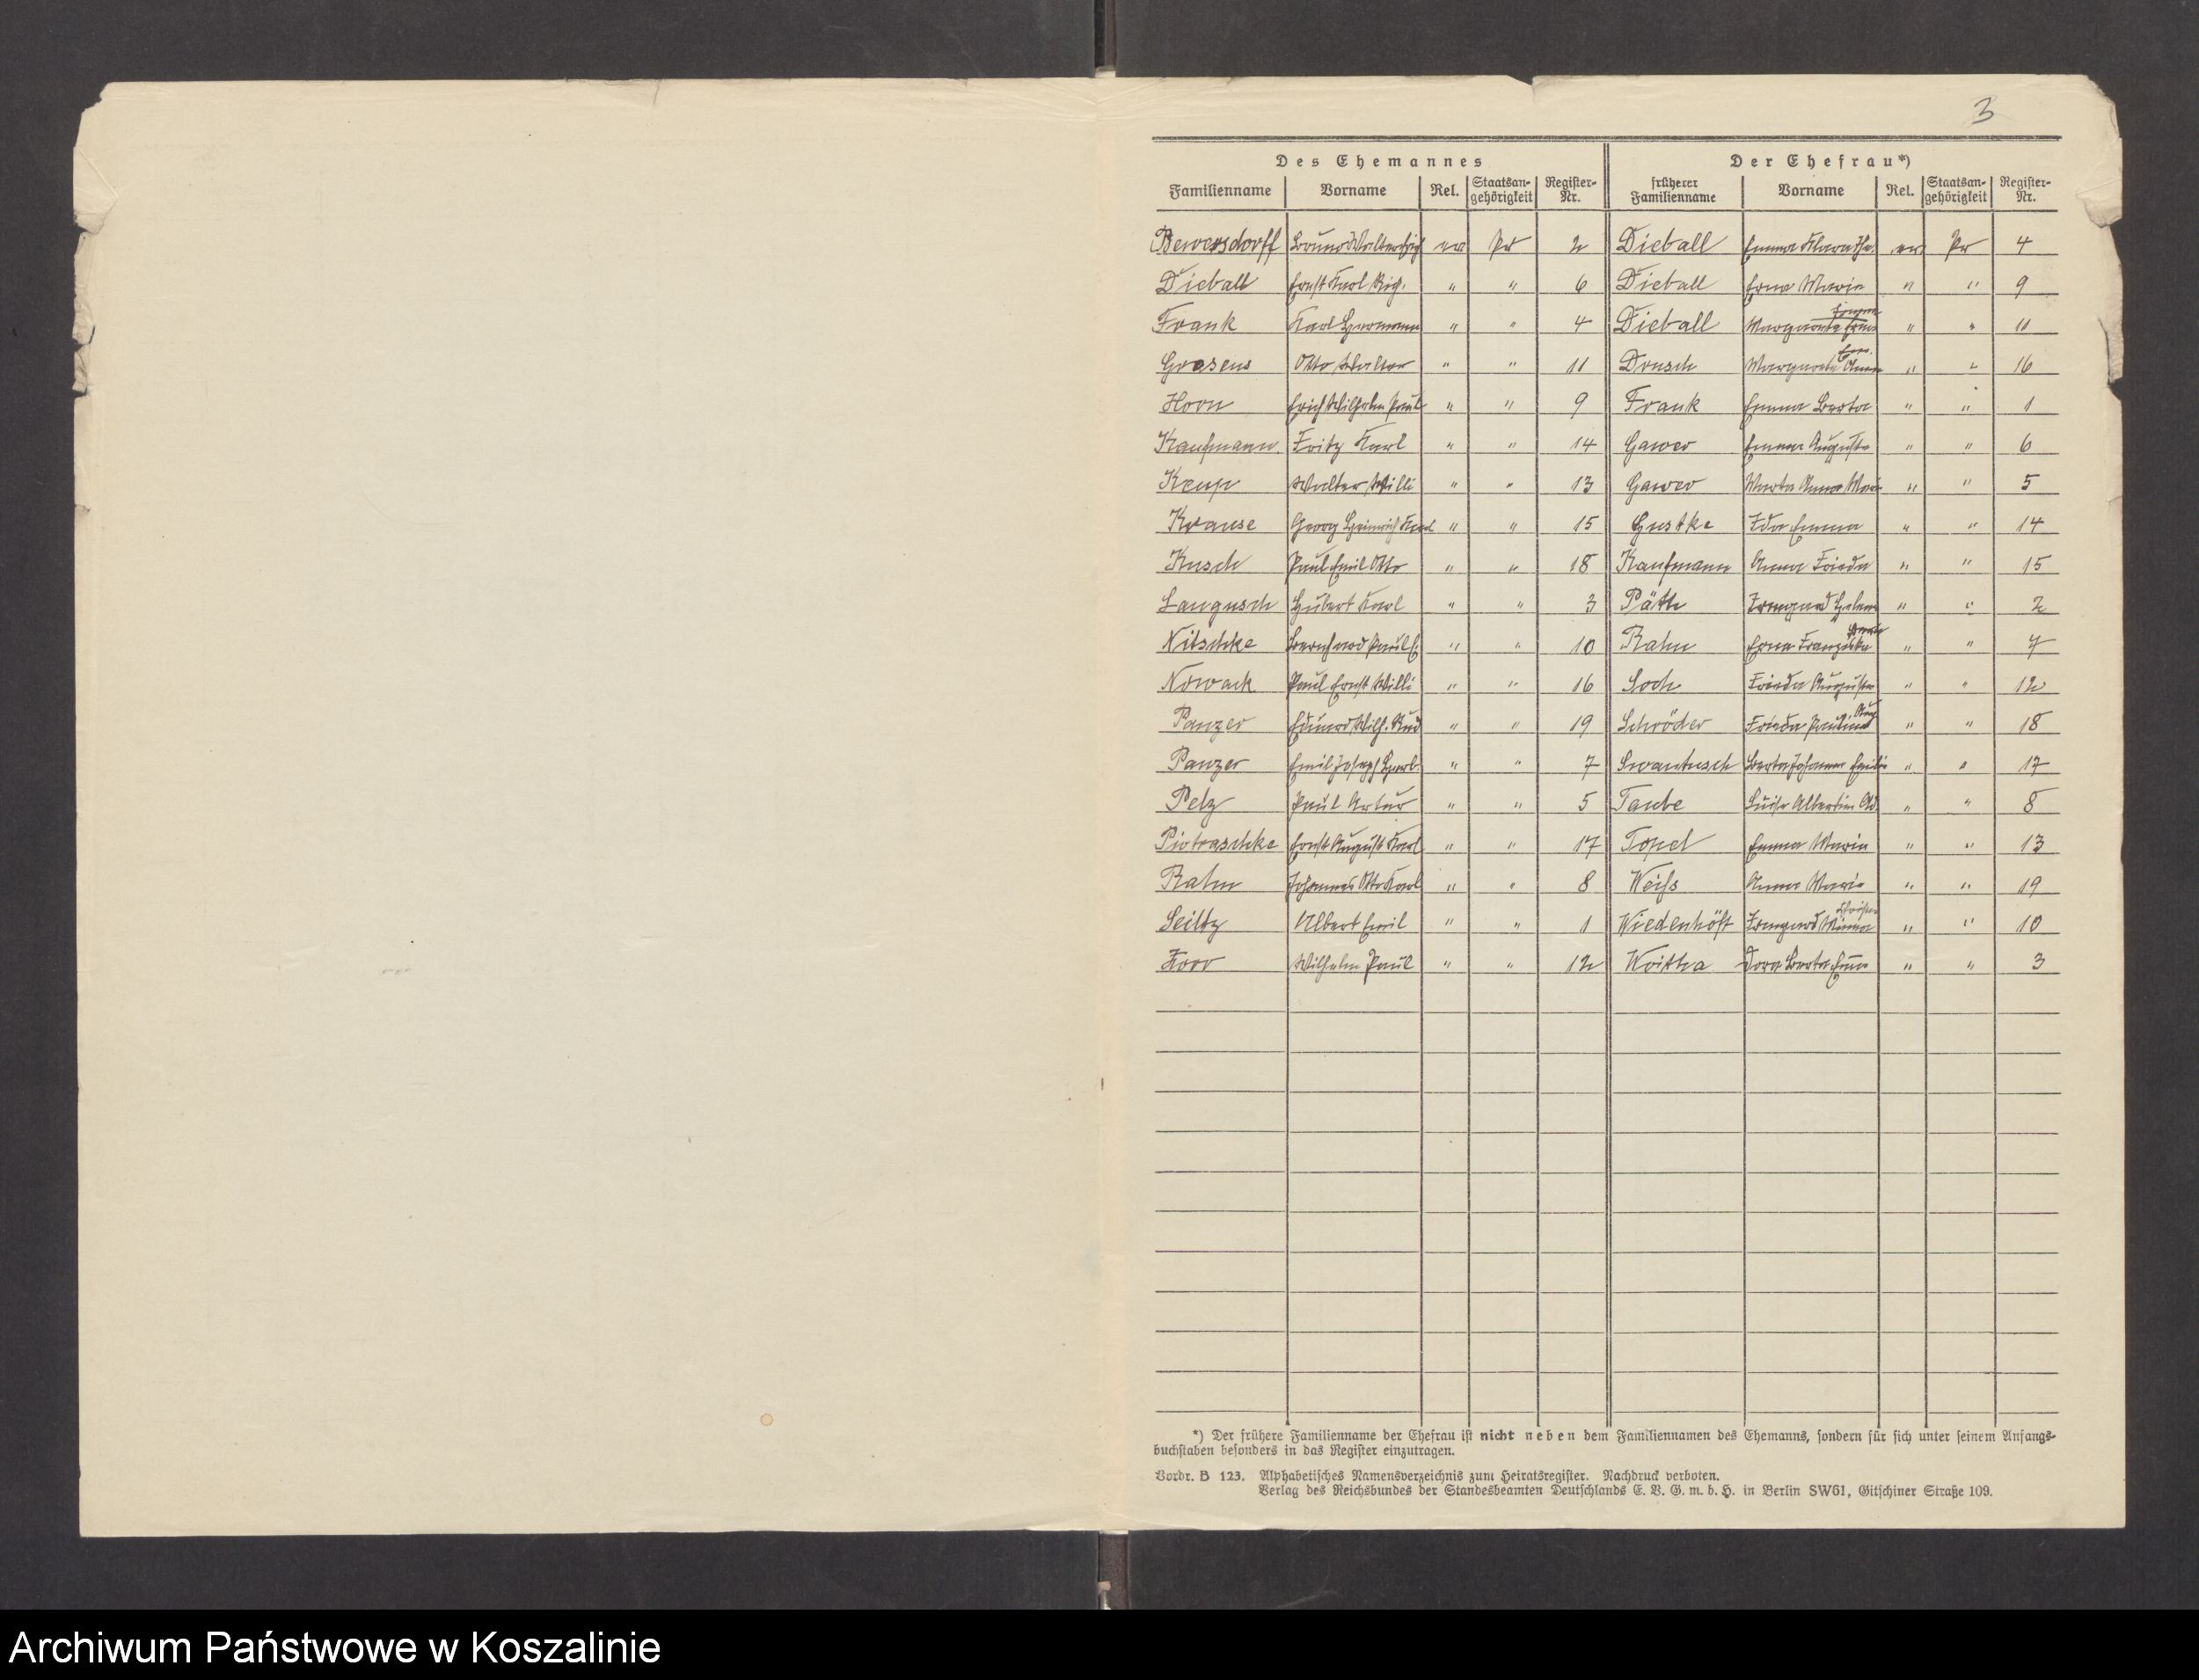 3
Des Ehemannes Der Ehefrau*)
Familienname Vorname Rel. Staatsan-gehörigkeit Register-Nr. früherer Familienname Vorname Rel. Staatsan-gehörigkeit Register-Nr.
Bewersdorff Bruno Walter ev Pr 2 Dieball Emma Klara ev Pr 4
Dieball Ernst Karl " " 6 Dieball Erna Marie " " 9
Frank Karl Hermann " " 4 Dieball Margarete " " 11
Grasens Otto Walter " " 11 Drusch Margarete Anna " " 16
Horn Erich Wilhelm Paul " " 9 Frank Emma Berta " " 1
Kaufmann Fritz Karl " " 14 Gawer Emma Auguste " " 6
Keup Walter Willi " " 13 Gawer Marta Anna Marie " " 5
Krause Georg Heinrich Karl " " 15 Gustke Ida Emma " " 14
Kusch Paul Emil Otto " " 18 Kaufmann Anna Frieda " " 15
Langusch Hubert Karl " " 3 Päth Irmgard Helene " " 2
Nitschke Bernhard Paul E. " " 10 Rahn Erna Franziska " " 7
Nowack Paul Ernst Willi " " 16 Soch Frieda Auguste " " 12
Panzer Eduard Wilh. Rud " " 19 Schröder Frieda Pauline Aug " " 18
Panzer Emil Joseph Herb. " " 7 Swantusch Berta Johanna Emilie " " 17
Pelz Paul Artur " " 5 Taube Luise Albertine " " 8
Piotraschke Ernst August Karl " " 17 Topel Emma Maria " " 13
Rahn Johannes Otto Karl " " 8 Weiss Anna Marie " " 19
Seiltz Albert Emil " " 1 Wiedenhöft Irmgard Minna " " 10
Zorr Wilhelm Paul " " 12 Woitha Dora Berta Emma " " 3
*) Der frühere Familienname der Ehefrau ist nicht neben dem Familiennamen des Ehemanns, sondern für sich unter seinem Anfangs-
buchstaben besonders in das Register einzutragen.
Vordr. B 123. Alphabetisches Namensverzeichnis zum Heiratsregister. Nachdruck verboten.
Verlag des Reichsbundes der Standesbeamten Deutschlands E. V. G. m. b. H. in Berlin SW61, Gitschiner Straße 109.
Archiwum Państwowe w Koszalinie